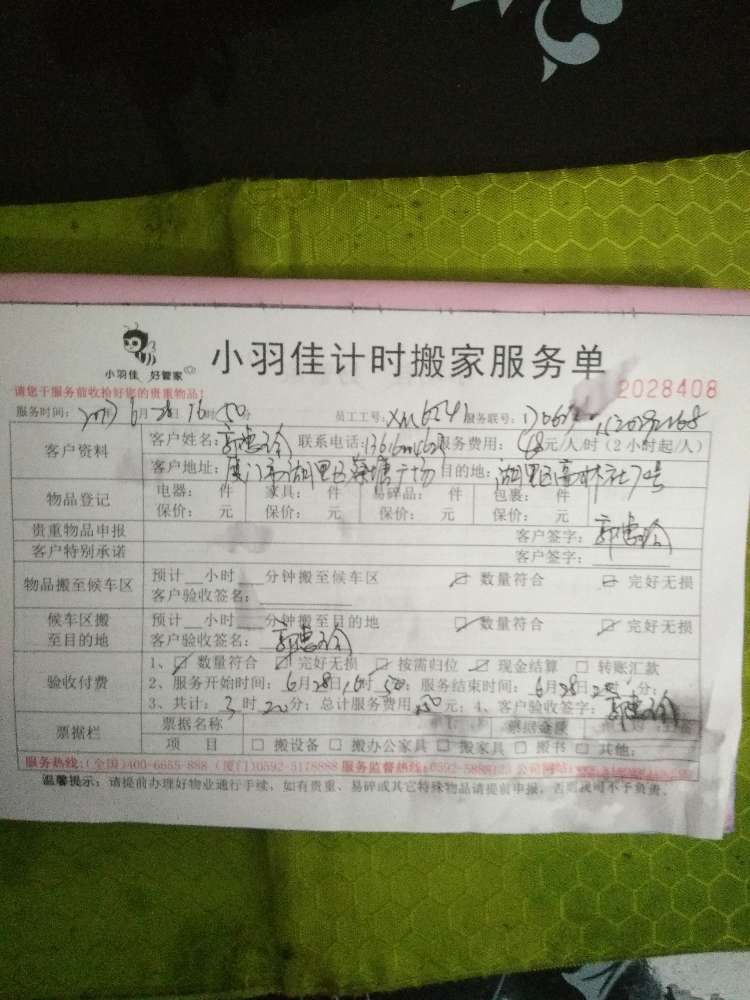 小羽佳 好管家
小羽佳计时搬家服务单
请您于服务前收拾好您的贵重物品!
2028408
服务时间: 2017年6月28日16时50分 员工工号: XM6241 服务联号:
客户资料 客户姓名: 郭 联系电话: 服务费用: 68元/人/时(2小时起/人)
客户地址: 厦门市湖里区 广场 目的地: 湖里区高林社7号
物品登记 电器: 件 家具: 件 易碎品: 件 包裹: 件
保价: 元 保价: 元 保价: 元 保价: 元
贵重物品申报 客户签字: 郭
客户特别承诺 客户签字:
物品搬至候车区 预计__小时__分钟搬至候车区 ☑ 数量符合 ☑ 完好无损
客户验收签名:
候车区搬至目的地 预计__小时__分钟搬至目的地 ☑ 数量符合 ☑ 完好无损
客户验收签名: 郭
验收付费 1、☑ 数量符合 ☑ 完好无损 ☑ 按需归位 ☑ 现金结算 □ 转账汇款
2、服务开始时间: 6月28日16时50分; 服务结束时间: 6月28日
3、共计: 3时20分; 总计服务费用 元; 4、客户验收签字: 郭
票据栏 票据名称 票据金额
项 目 □ 搬设备 □ 搬办公家具 □ 搬家具 □ 搬书 □ 其他:
服务热线:(全国)400-6655-888 (厦门)0592-5178888 服务监督热线: 公司网站:
温馨提示: 请提前办理好物业通行手续, 如有贵重、易碎或其它特殊物品请提前申报, 否则我司不予负责。